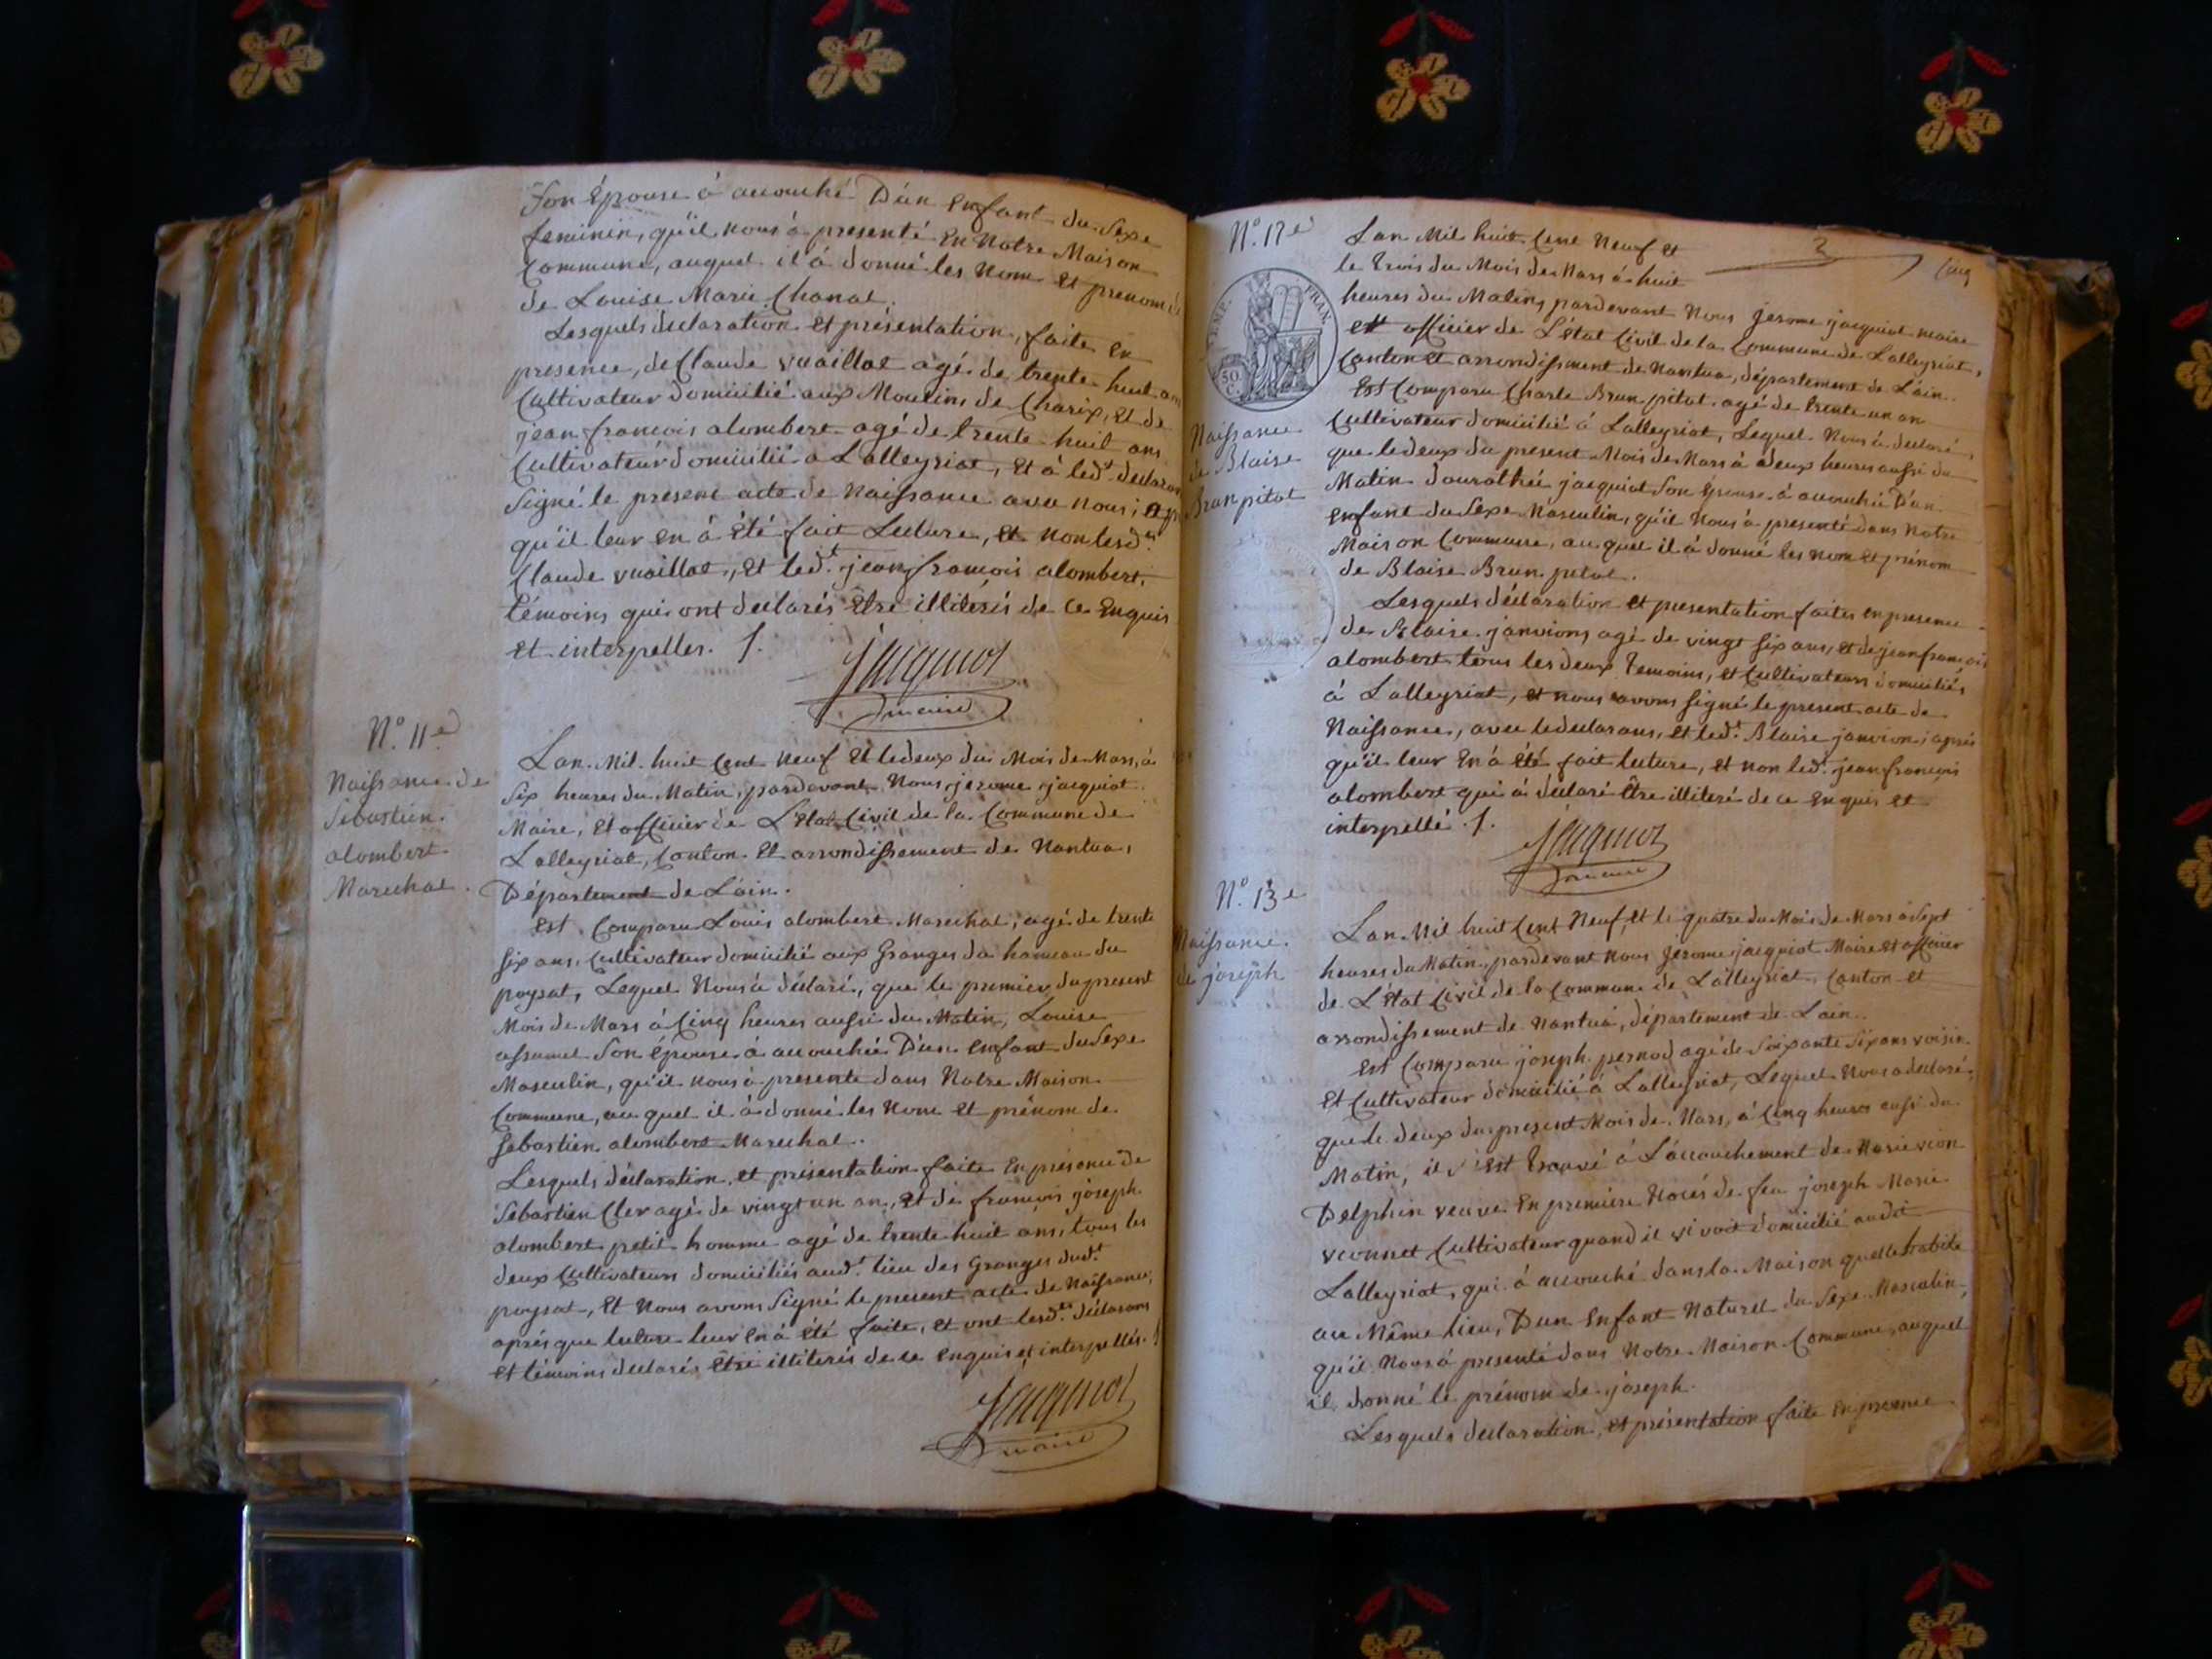 Son Épouse à accouché D'un Enfant du Sexe
feminin, qu'il nous à presenté En Notre Maison
Commune, auquel il à donné les Nom et prenom de
de Louise Marie Chanal.
Lesquels declaration et présentation, faite en
presence, de Claude vuaillat agé de trente huit ans
Cultivateur domicilié aux Moulins de Charix, et de
jean francois alombert agé de trente huit ans
Cultivateur domicilié a Lalleyriat, et à led.t declarant
Signé le present acte de Naissance avec nous;
qu'il leur en à Été fait Lecture, et non lesd.ts
Claude vuaillat, et led.t jean francois alombert,
témoins qui ont declarés Être illiterés de ce Enquis
et interpellés. /.
Jacquiot
maire
N.o 11.e
Naissance de
Sebastien
alombert
Marechal.
Lan Mil huit Cent Neuf et le deux du Mois de Mars, à
Six heures du Matin, pardevant Nous jerome jacquiot
Maire, et officier de L'état Civil de la Commune de
Lalleyriat, Canton et arrondissement de Nantua,
Département de L'ain.
Est Comparu Louis alombert Marechal, agé de trente
Six ans, Cultivateur domicilié aux Granges du hameau du
poysat, Lequel Nous à déclaré, que le premier du present
Mois de Mars à Cinq heures aussi du Matin, Louise
assumel Son Épouse à accouchée D'un Enfant du Sexe
Masculin, qu'il nous à presenté dans Notre Maison
Commune, au quel il à donné les Nom et prénom de
Sebastien alombert Marechal.
Lesquels déclaration, et présentation faite En présence de
Sebastien Cler agé de vingt un an, et de francois joseph
alombert petit homme agé de trente huit ans, tous les
deux Cultivateurs domiciliés aud.t lieu des Granges dud.t
poysat, Et Nous avons Signé le present acte de Naissance,
aprés que lecture leur En à été faite, et ont lesd.ts déclarans
et témoins declarés Être illiterés de ce enquis et interpellés. /.
Jacquiot
maire
N.o 12e
EMP. FRAN.
50 C.
Naissance
de Blaise
Brun pitot
2
Cinq
Lan Mil huit Cent Neuf et
le trois du Mois de Mars à huit
heures du Matin, pardevant Nous Jerome jacquiot maire
et officier de L'état Civil de la Commune de Lalleyriat,
Canton et arrondissement de Nantua, département de L'ain.
Est Comparu Charle Brun pitot agé de trente un an
Cultivateur domicilié à Lalleyriat, Lequel Nous à declaré,
que le deux du present Mois de Mars à deux heures aussi du
Matin dourothée jacquiot Son Épouse à accouché D'un
enfant du Sexe Masculin, qu'il Nous à presenté dans Notre
Maison Commune, au quel il à donné les nom et prénom
de Blaise Brun pitot.
Lesquels déclaration et presentation faites en presence
de Blaise janvion, agé de vingt Six ans, et de jean francois
alombert tous les deux temoins, et Cultivateurs domiciliés
à Lalleyriat, et nous avons signé le present acte de
Naissance, avec le declarans, et led.t Blaise janvion; aprés
qu'il leur En à été fait lecture, et non led.t jean francois
alombert qui à declaré Être illiteré de ce Enquis et
interpellé. /.
Jacquiot
maire
N.o 13e
Naissance
de joseph
Lan Mil huit Cent Neuf, et le quatre du Mois de Mars à Sept
heures du Matin, pardevant Nous Jerome jacquiot Maire et officier
de L'état Civil de la Commune de Lalleyriat, Canton et
arrondissement de Nantua, département de Lain.
Est Comparu joseph pernod agé de Soixante Six ans voisin
et Cultivateur domicilié à Lalleyriat, Lequel Nous à declaré,
que le deux du present Mois de Mars, à Cinq heures aussi du
Matin, il S'est trouvé à L'accouchement de Marie vion
Delphin veuve En première Noces de feu joseph Marie
vconnet Cultivateur quand il vivoit domicilié audit
Lalleyriat, qui à accouché dans la Maison quelle habite
au Même lieu, D'un Enfant Naturel du Sexe Masculin,
qu'il Nous à presenté dans Notre Maison Commune, auquel
il donné le prénom de joseph.
Lesquels declaration, et présentation faite En presence